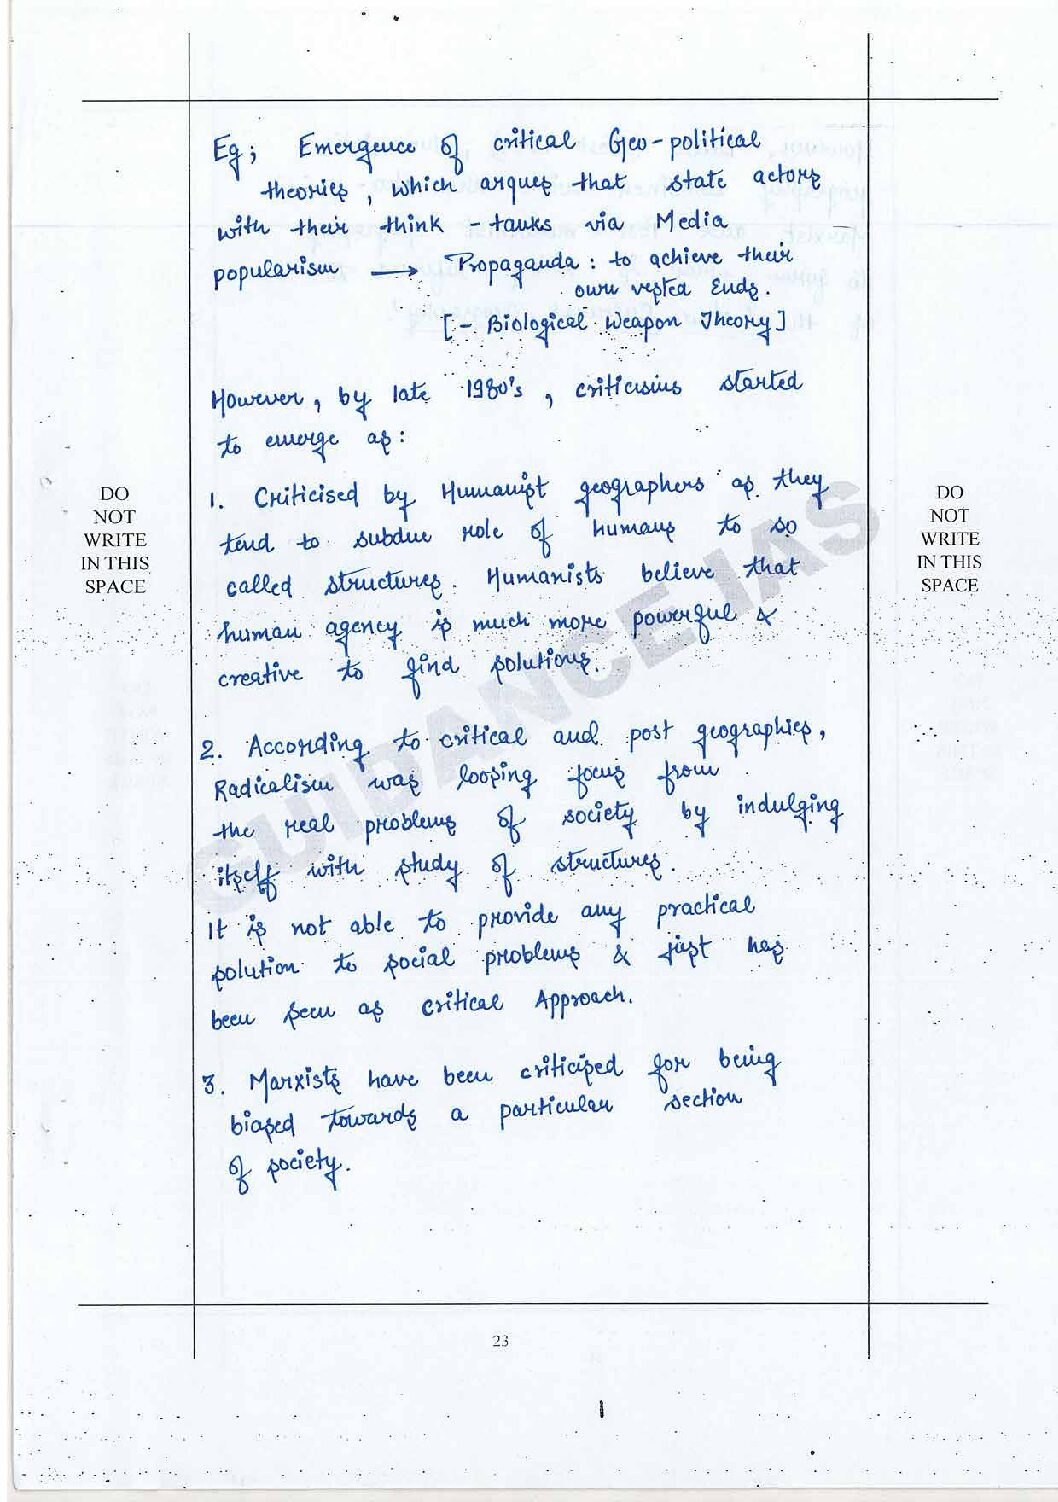 Eg; Emergence of critical Geo-political
theories, which argues that state actors
with their think-tanks via Media
popularism → Propaganda: to achieve their
own vested Ends.
[- Biological Weapon Theory]
However, by late 1980's, criticisms started
to emerge as:
1. Criticised by Humanist geographers as they
tend to subdue role of humans to so
called structures. Humanists believe that
human agency is much more powerful &
creative to find solutions.
2. According to critical and post geographies,
Radicalism was loosing focus from
the real problems of society by indulging
itself with study of structures.
It is not able to provide any practical
solution to social problems & just has
been seen as critical Approach.
3. Marxists have been criticised for being
biased towards a particular section
of society.
DO
NOT
WRITE
IN THIS
SPACE
DO
NOT
WRITE
IN THIS
SPACE
GUIDANCE IAS
23